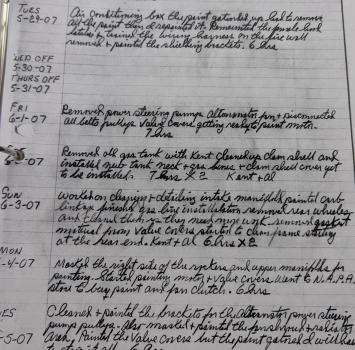 TUES
5-29-07
Air conditioning box the paint gatored up had to remove
all the paint then I repainted it. Remounted the
and trained the wiring harness on the fire wall
removed + painted the shielding brackets. 6 hrs
WED OFF
5-30-07
THURS OFF
5-31-07
FRI
6-1-07
Removed power steering pump, alternator, fan + disconnected
all belts pulleys valve covers getting ready to paint motor.
7 hrs
-07
Removed old gas tank with Kent cleaned up clam shell and
installed new tank neck + gas hoses + clam shell cover yet
to be installed. 7 hrs X 2 Kent + al
SUN
6-3-07
Worked on cleaning + detailing intake manifold painted carb
gas line installation removed rear wheels
and cleaned them up they need more work. removed gasket
material from valve covers started to clean frame starting
at the rear end. Kent + al 6 hrs X 2
MON
-4-07
Masked the right side of the rockers and upper manifolds for
painting. Started painting motor + valve covers. Went to N.A.P.A.
store to buy paint and fan clutch. 6 hrs
ES
-5-07
Cleaned + painted the brackets for the alternator, power steering
pump pulleys. Also masked + painted the fan shroud + radiator
area, Painted the Valve covers but the paint gatored & will have